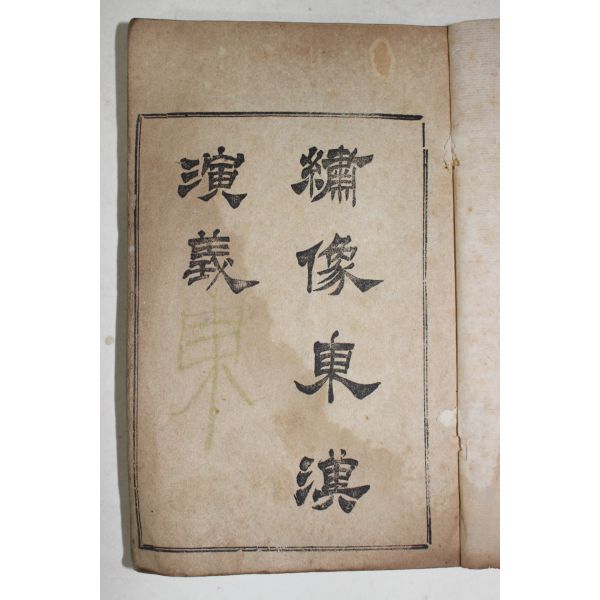 繡像東漢
演義
東